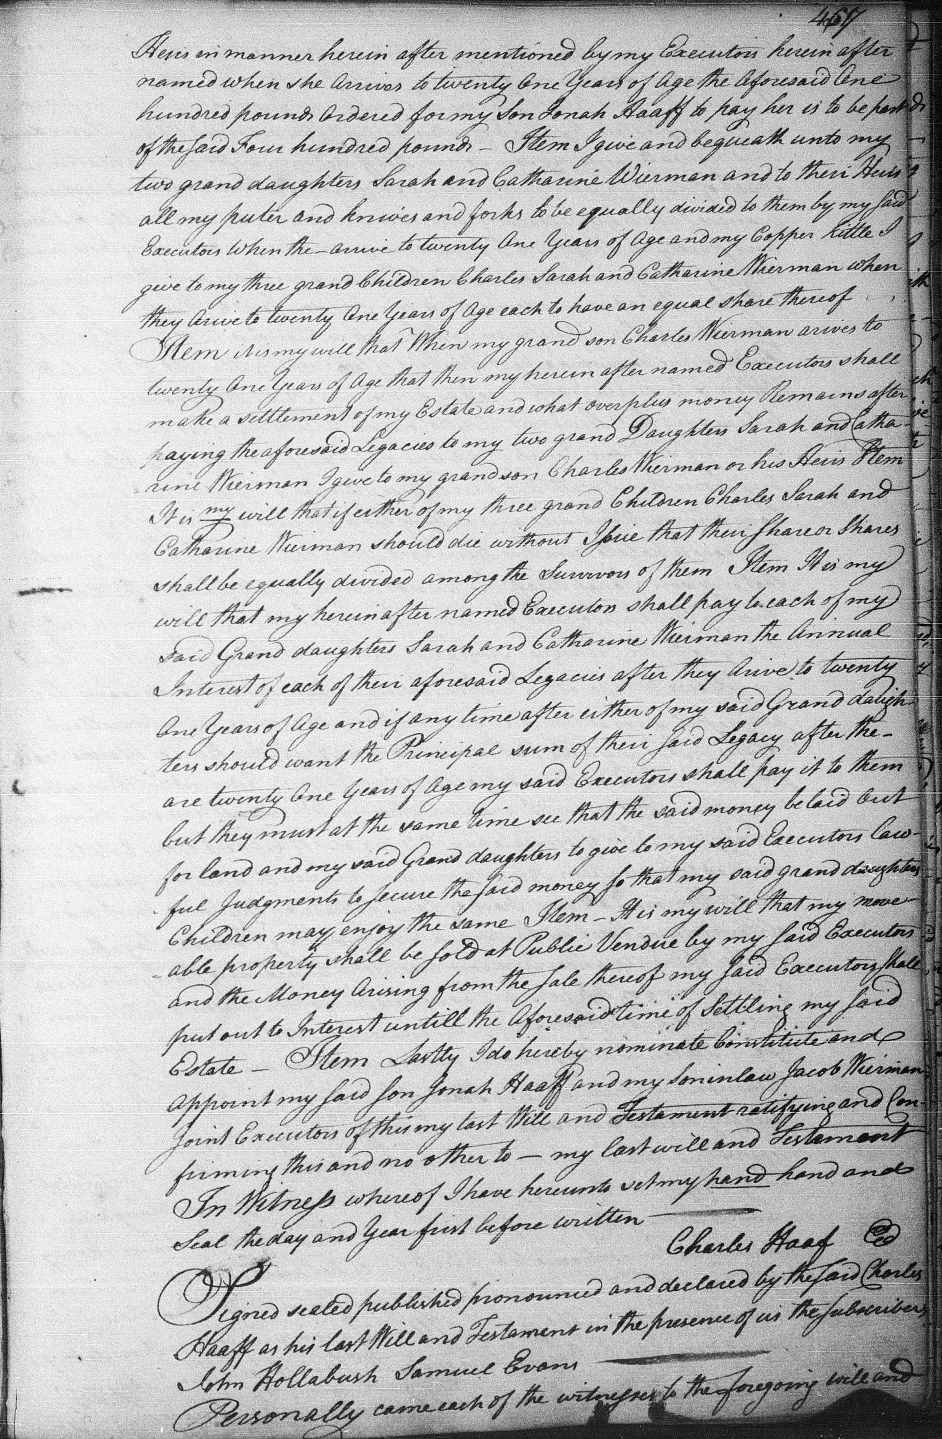 467
Heirs in manner herein after mentioned by my Executors herein after
named when she arrives to twenty One Years of Age the aforesaid One
hundred pounds Ordered for my Son Jonah Haaff to pay her is to be part
of the said Four hundred pounds - Item I give and bequeath unto my
two grand daughters Sarah and Catharine Wierman and to their Heirs
all my puter and knives and forks to be equally divided to them by my said
Executors when the - arrive to twenty One Years of Age and my Copper kittle I
give to my three grand Children Charles Sarah and Catharine Wierman when
they arive to twenty One Years of Age each to have an equal share thereof
Item it is my will that When my grand son Charles Wierman arives to
twenty One Years of Age that then my herein after named Executors shall
make a settlement of my Estate and what overplus money Remains after
paying the aforesaid Legacies to my two grand Daughters Sarah and Catha
rine Wierman I give to my grandson Charles Wierman or his Heirs Item
It is my will that if either of my three grand Children Charles Sarah and
Catharine Wierman should die without Issue that their Share or Shares
shall be equally divided among the Survivors of them Item It is my
will that my herein after named Executors shall pay to each of my
said Grand daughters Sarah and Catharine Wierman the Annual
Interest of each of their aforesaid Legacies after they Arive to twenty
One Years of Age and if any time after either of my said Grand daugh-
ters should want the Principal sum of their said Legacy after the-
are twenty One Years of Age my said Executors shall pay it to them
but they must at the same time see that the said money be laid out
for land and my said Grand daughters to give to my said Executors law-
ful Judgments to secure the said money so that my said grand daughters
Children may enjoy the same Item - It is my will that my move-
able property shall be sold at Public Vendue by my said Executors
and the Money Arising from the sale thereof my said Executors shall
put out to Interest untill the aforesaid time of Settling my said
Estate - Item Lastly I do hereby nominate Constitute and
Appoint my said son Jonah Haaff and my Soninlaw Jacob Wierman
Joint Executors of this my last Will and Testament ratifying and Con-
firming this and no other to - my last will and Testament
In Witness whereof I have hereunto set my hand hand and
Seal the day and Year first before written
Charles Haaf
Signed sealed published pronounced and declared by the said Charles
Haaff as his last Will and Testament in the presence of us the subscribers
John Hollabush Samuel Evans
Personally came each of the witnesses to the foregoing will and